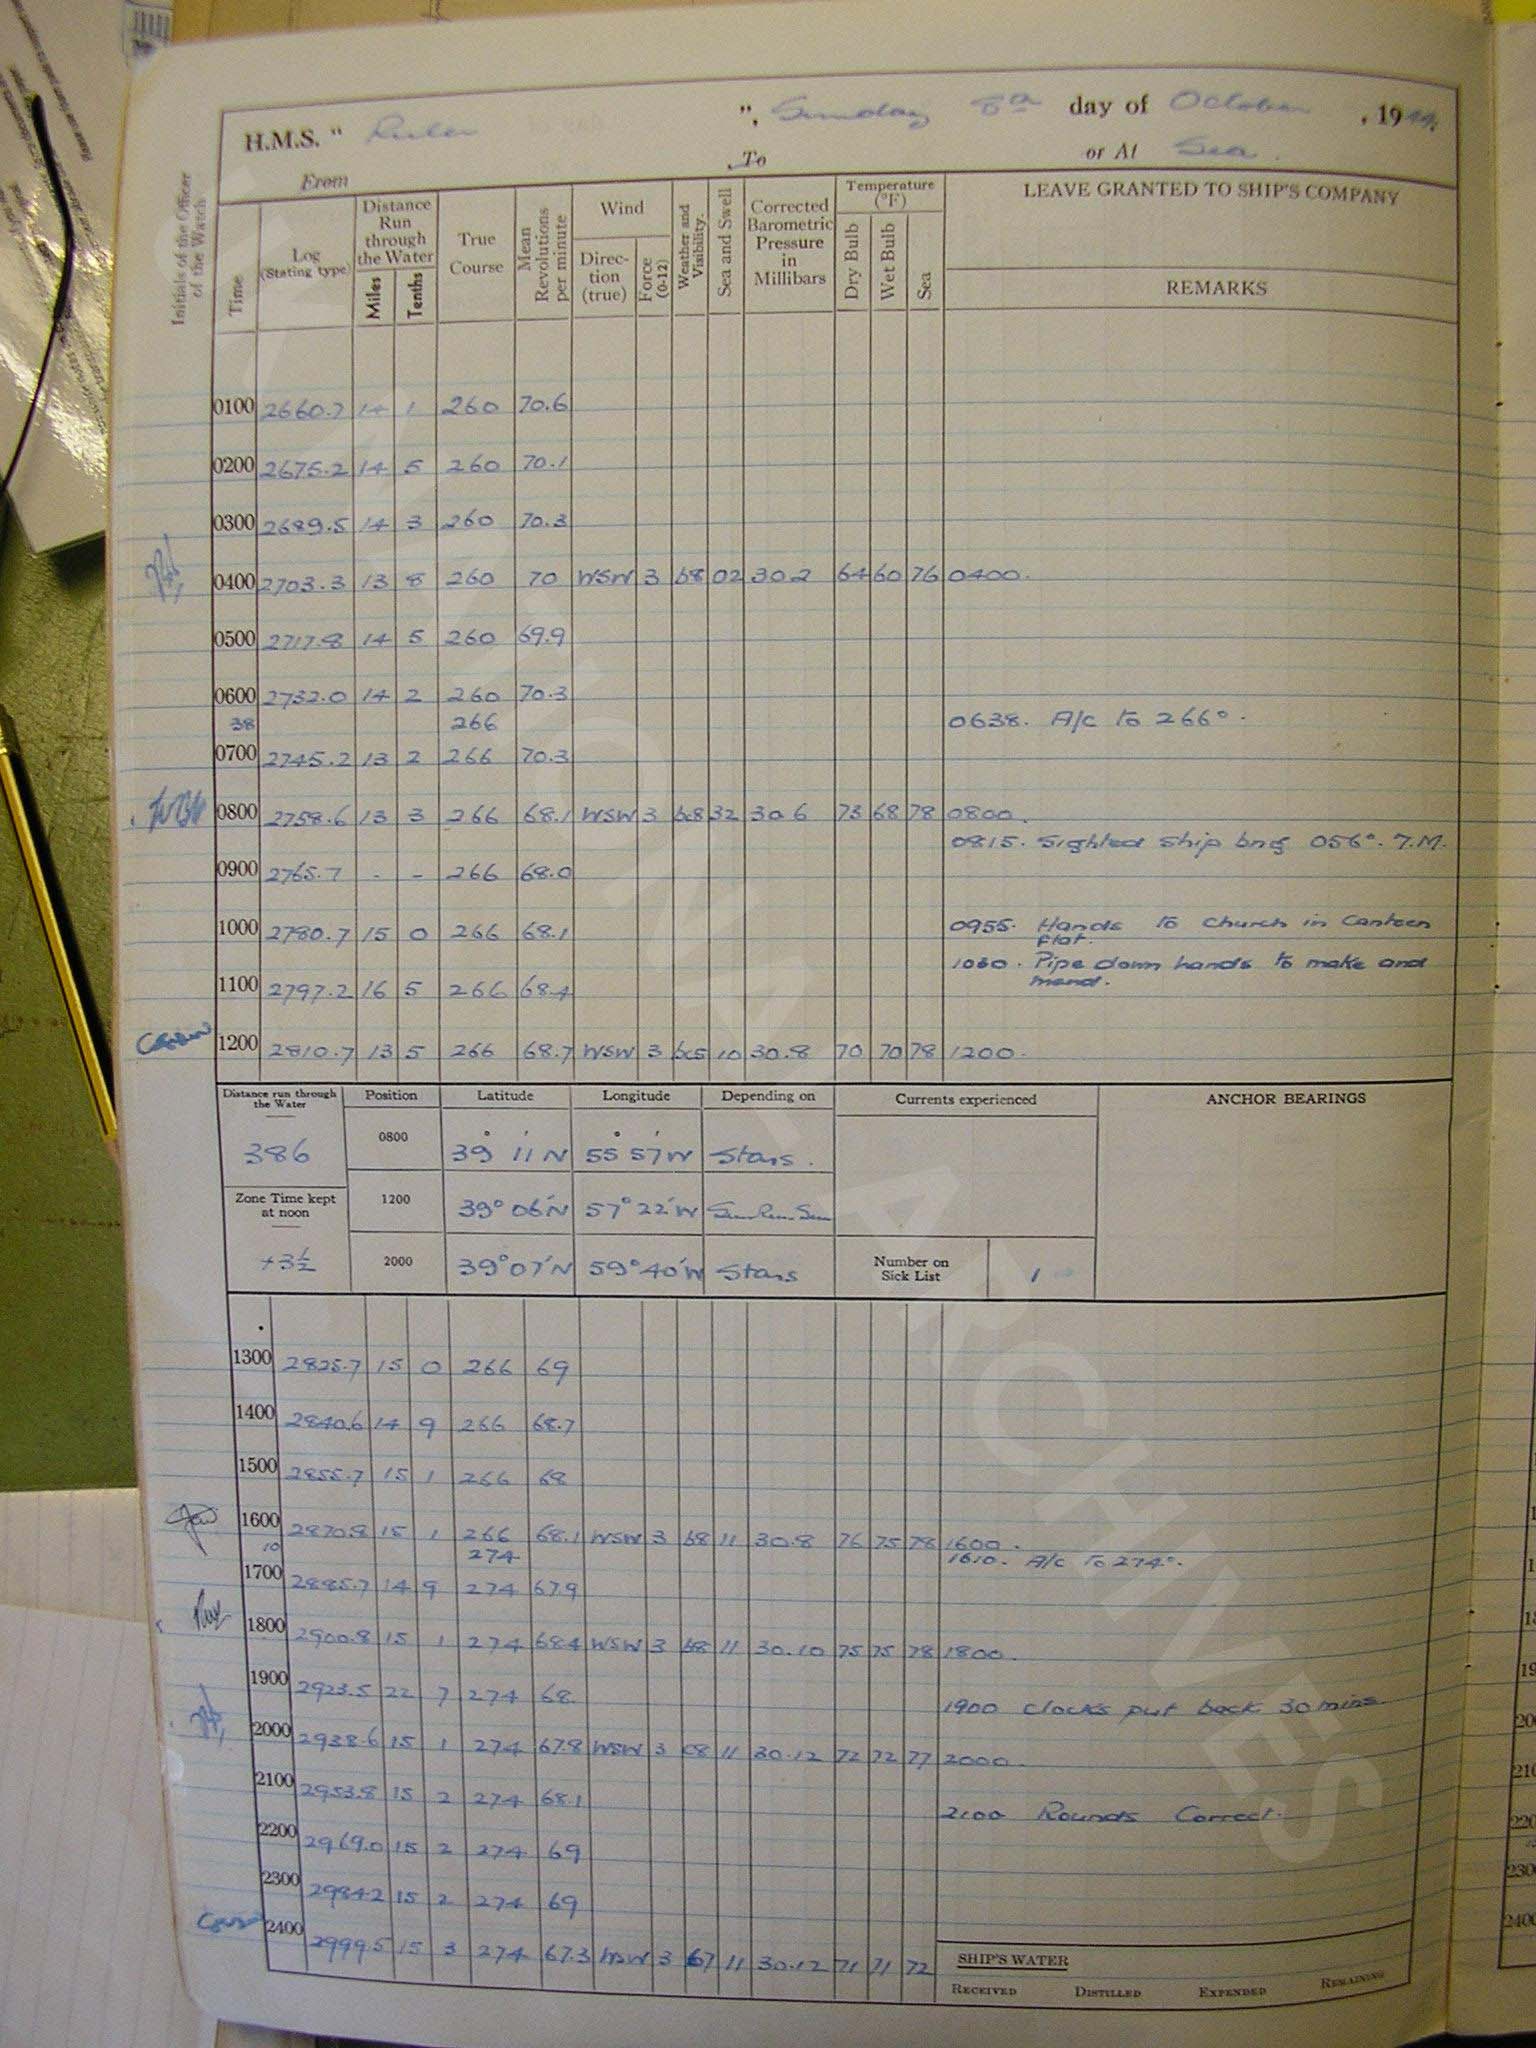 H.M.S. " Ruler ", Sunday 8th day of October, 1944.
From To or At Sea.
Initials of the Officer of the Watch
Time
Log (Stating type)
Distance Run through the Water
Miles Tenths
True Course
Mean Revolutions per minute
Wind
Direction (true)
Force (0-12)
Weather and Visibility.
Sea and Swell
Corrected Barometric Pressure in Millibars
Temperature (°F)
Dry Bulb Wet Bulb Sea
LEAVE GRANTED TO SHIP'S COMPANY
REMARKS
0100 2660.7 14 1 260 70.6
0200 2675.2 14 5 260 70.1
0300 2689.5 14 3 260 70.3
0400 2703.3 13 8 260 70 WSW 3 b8 02 30.2 64 60 76 0400.
0500 2717.8 14 5 260 69.9
0600 2732.0 14 2 260 70.3
38 266 0638. A/c to 266°.
0700 2745.2 13 2 266 70.3
0800 2758.6 13 3 266 68.1 WSW 3 bc8 32 30.6 73 68 78 0800.
0815. Sighted ship bng 056°. 7.M.
0900 2765.7 - - 266 68.0
1000 2780.7 15 0 266 68.1 0955. Hands to church in Canteen
flat.
1030. Pipe down hands to make and
1100 2797.2 16 5 266 68.4 mend.
1200 2810.7 13 5 266 68.7 WSW 3 bc5 10 30.8 70 70 78 1200.
Distance run through the Water
386
Zone Time kept at noon
+3½
Position Latitude Longitude Depending on
0800 39° 11' N 55° 57' W Stars.
1200 39° 06' N 57° 22' W Sun Run Sun
2000 39° 07' N 59° 40' W Stars
Currents experienced
Number on Sick List 1
ANCHOR BEARINGS
1300 2825.7 15 0 266 69
1400 2840.6 14 9 266 68.7
1500 2855.7 15 1 266 68
1600 2870.8 15 1 266 68.1 WSW 3 b8 11 30.8 76 75 78 1600.
10 274 1610. A/c to 274°.
1700 2885.7 14 9 274 67.9
1800 2900.8 15 1 274 68.4 WSW 3 b8 11 30.10 75 75 78 1800.
1900 2923.5 22 7 274 68 1900 Clocks put back 30 mins
2000 2938.6 15 1 274 67.8 WSW 3 c8 11 30.12 72 72 77 2000.
2100 2953.8 15 2 274 68.1 2100 Rounds Correct.
2200 2969.0 15 2 274 69
2300 2984.2 15 2 274 69
2400 2999.5 15 3 274 67.3 WSW 3 b7 11 30.12 71 71 72
SHIP'S WATER
RECEIVED DISTILLED EXPENDED REMAINING
NATIONAL ARCHIVES